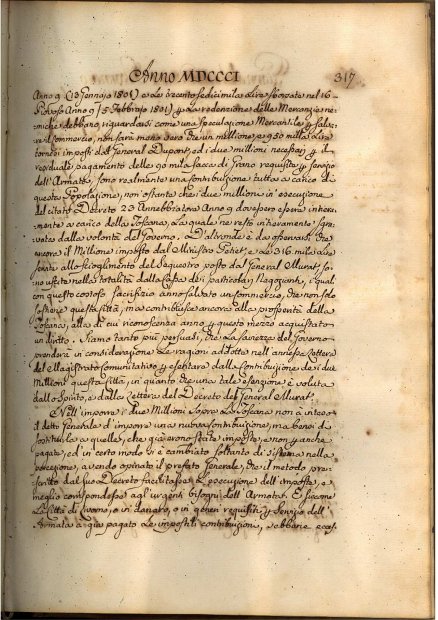 Anno MDCCCI 317
Anno 9 (13 Gennajo 1801) e Le trecento sedicimila Lire sborsate nel 16
Piovoso Anno 9 (5 Febbrajo 1801) p La redenzione delle Mercanzie ne-
miche debbano riguardarsi come una speculazione Mercantile p salva-
re il Commercio, non sarà meno vero che un millione, e 950 mila Lire
tornesi imposti dal General Dupont, ed i due millioni necessarj p il
residuale pagamento delle 90 mila sacca di Grano requisite p servizio
dell'Armata, sono realmente una Contribuzione tutta a carico di
questa Popolazione, non'ostante che i due millioni in'esecuzione
del citato Decreto 23 Annebbiatore Anno 9 dovessero essere intera-
mente a carico della Toscana, La quale ne restò interamente sgra-
vata dalla volontà del Governo. D'altronde è da osservarsi, che
ancora il Millione imposto dal Ministro Petiet, e Le 316 mila Lire
per lo scioglimento del Sequestro posto dal General Murat, so-
no uscite nella totalità dalla Cassa dei particolari Negozianti, i quali
con questo costoso sacrifizio anno salvato un Commercio, che non solo
sostiene questa Città, ma contribuisce ancora alla prosperità della
Toscana, alla di cui riconoscenza anno p questo mezzo acquistato
un diritto. Siamo tanto più persuasi, che La saviezza del Governo
prenderà in considerazione Le ragioni addotte nell'annessa Lettera
del Magistrato Comunitativo p esentare dalla Contribuzione dei due
Millioni questa Città, in quanto che una tale esenzione è voluta
dallo Spirito, e dalla Lettera del Decreto del General Murat.
Nell'imporre i due Millioni sopra La Toscana non à inteso
il detto Generale d'imporre una nuova Contribuzione, ma bensì di
sostituirla a quelle, che già erano state imposte, e non p anche
pagate, ed in certo modo vi è cambiato soltanto di sistema nella
percezione, avendo opinato il prefato Generale, che il metodo pre-
scritto dal suo Decreto facilitasse L'esecuzione dell'imposte, e
meglio corrispondesse agl'urgenti bisogni dell'Armata. E siccome
La Città di Livorno, o in danaro, o in generi requisiti p servizio dell'
Armata à già pagato Le imposteli contribuzioni, e abbiam eces-